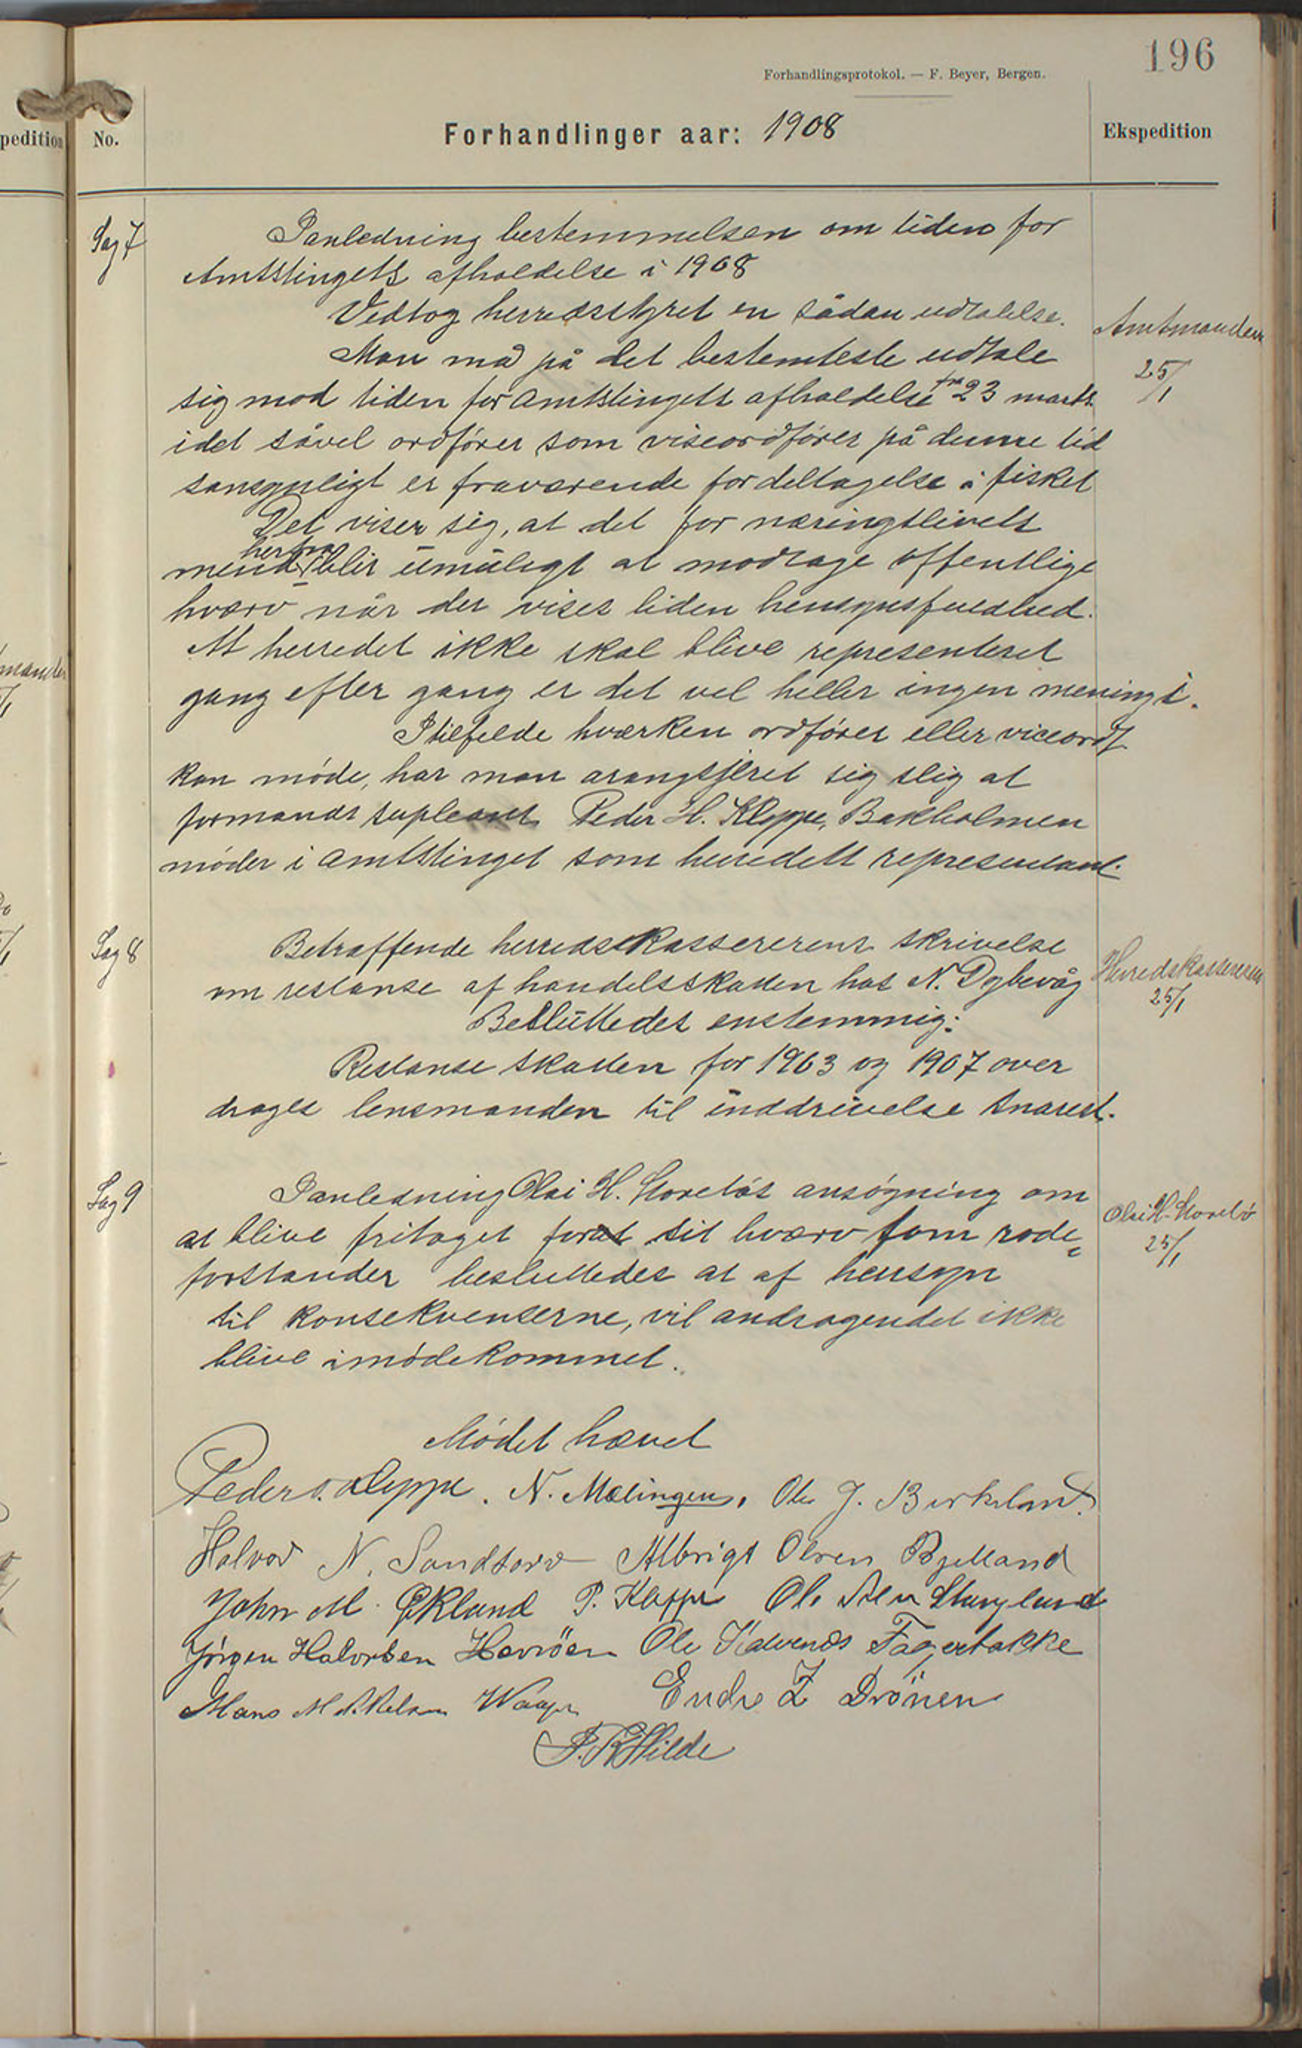 196
Forhandlingsprotokol. — F. Beyer, Bergen.
pedition
No.
Forhandlinger aar: 1908
Ekspedition
Sag 7
I anledning bestemmelsen om tiden for
Amtstingets afholdelse i 1908
Vedtog herredsstyret en sådan udtalelse.
Amtmanden
25/1
Man må på det bestemteste udtale
sig mod tiden for amtstingets afholdelse fra 23 marts
idet såvel ordfører som viseordfører på denne tid
sansynligt er fraværende for deltagelse i fisket
Det viser sig, at det for næringslivets
mend herfra blir umuligt at modtage offentlige
hværv når der vises liden hensynsfuldhed.
At herredet ikke skal blive representeret
gang efter gang er det vel heller ingen mening i.
I tilfelde hværken ordfører eller viceordf.
kan møde, har man arangsjeret sig slig at
formands supleant Peder H. Kleppe, Bakholmen
møder i amtstinget som herredets representant.
Sag 8
Betraffende herredskassererens skrivelse
om restanse af handelsskatten hos N. Dybevåg
Herredskassereren
25/1
Besluttedes enstemmig:
Restanse skatten for 1903 og 1907 over
drages lensmanden til inddrivelse snarest.
Sag 9
I anledning Olai H. Storebøs ansøgning om
at blive fritaget for sit hværv som rode=
forstander besluttedes at af hensyn
til konsekvenserne, vil andragendet ikke
blive imødekommet.
Olai H. Storebø
25/1
Mødet hævet
Peder O. Kleppe. N. Mælingen. Ole J. Birkeland.
Halvor N. Sandtorv Albrigt Olsen Bjelland
John M. Økland P. Kleppe Ole Stangeland
Jørgen Halvorsen Havrøen Ole Fagerbakke
Mons Mikkelsen Waage Endre Z Drönen